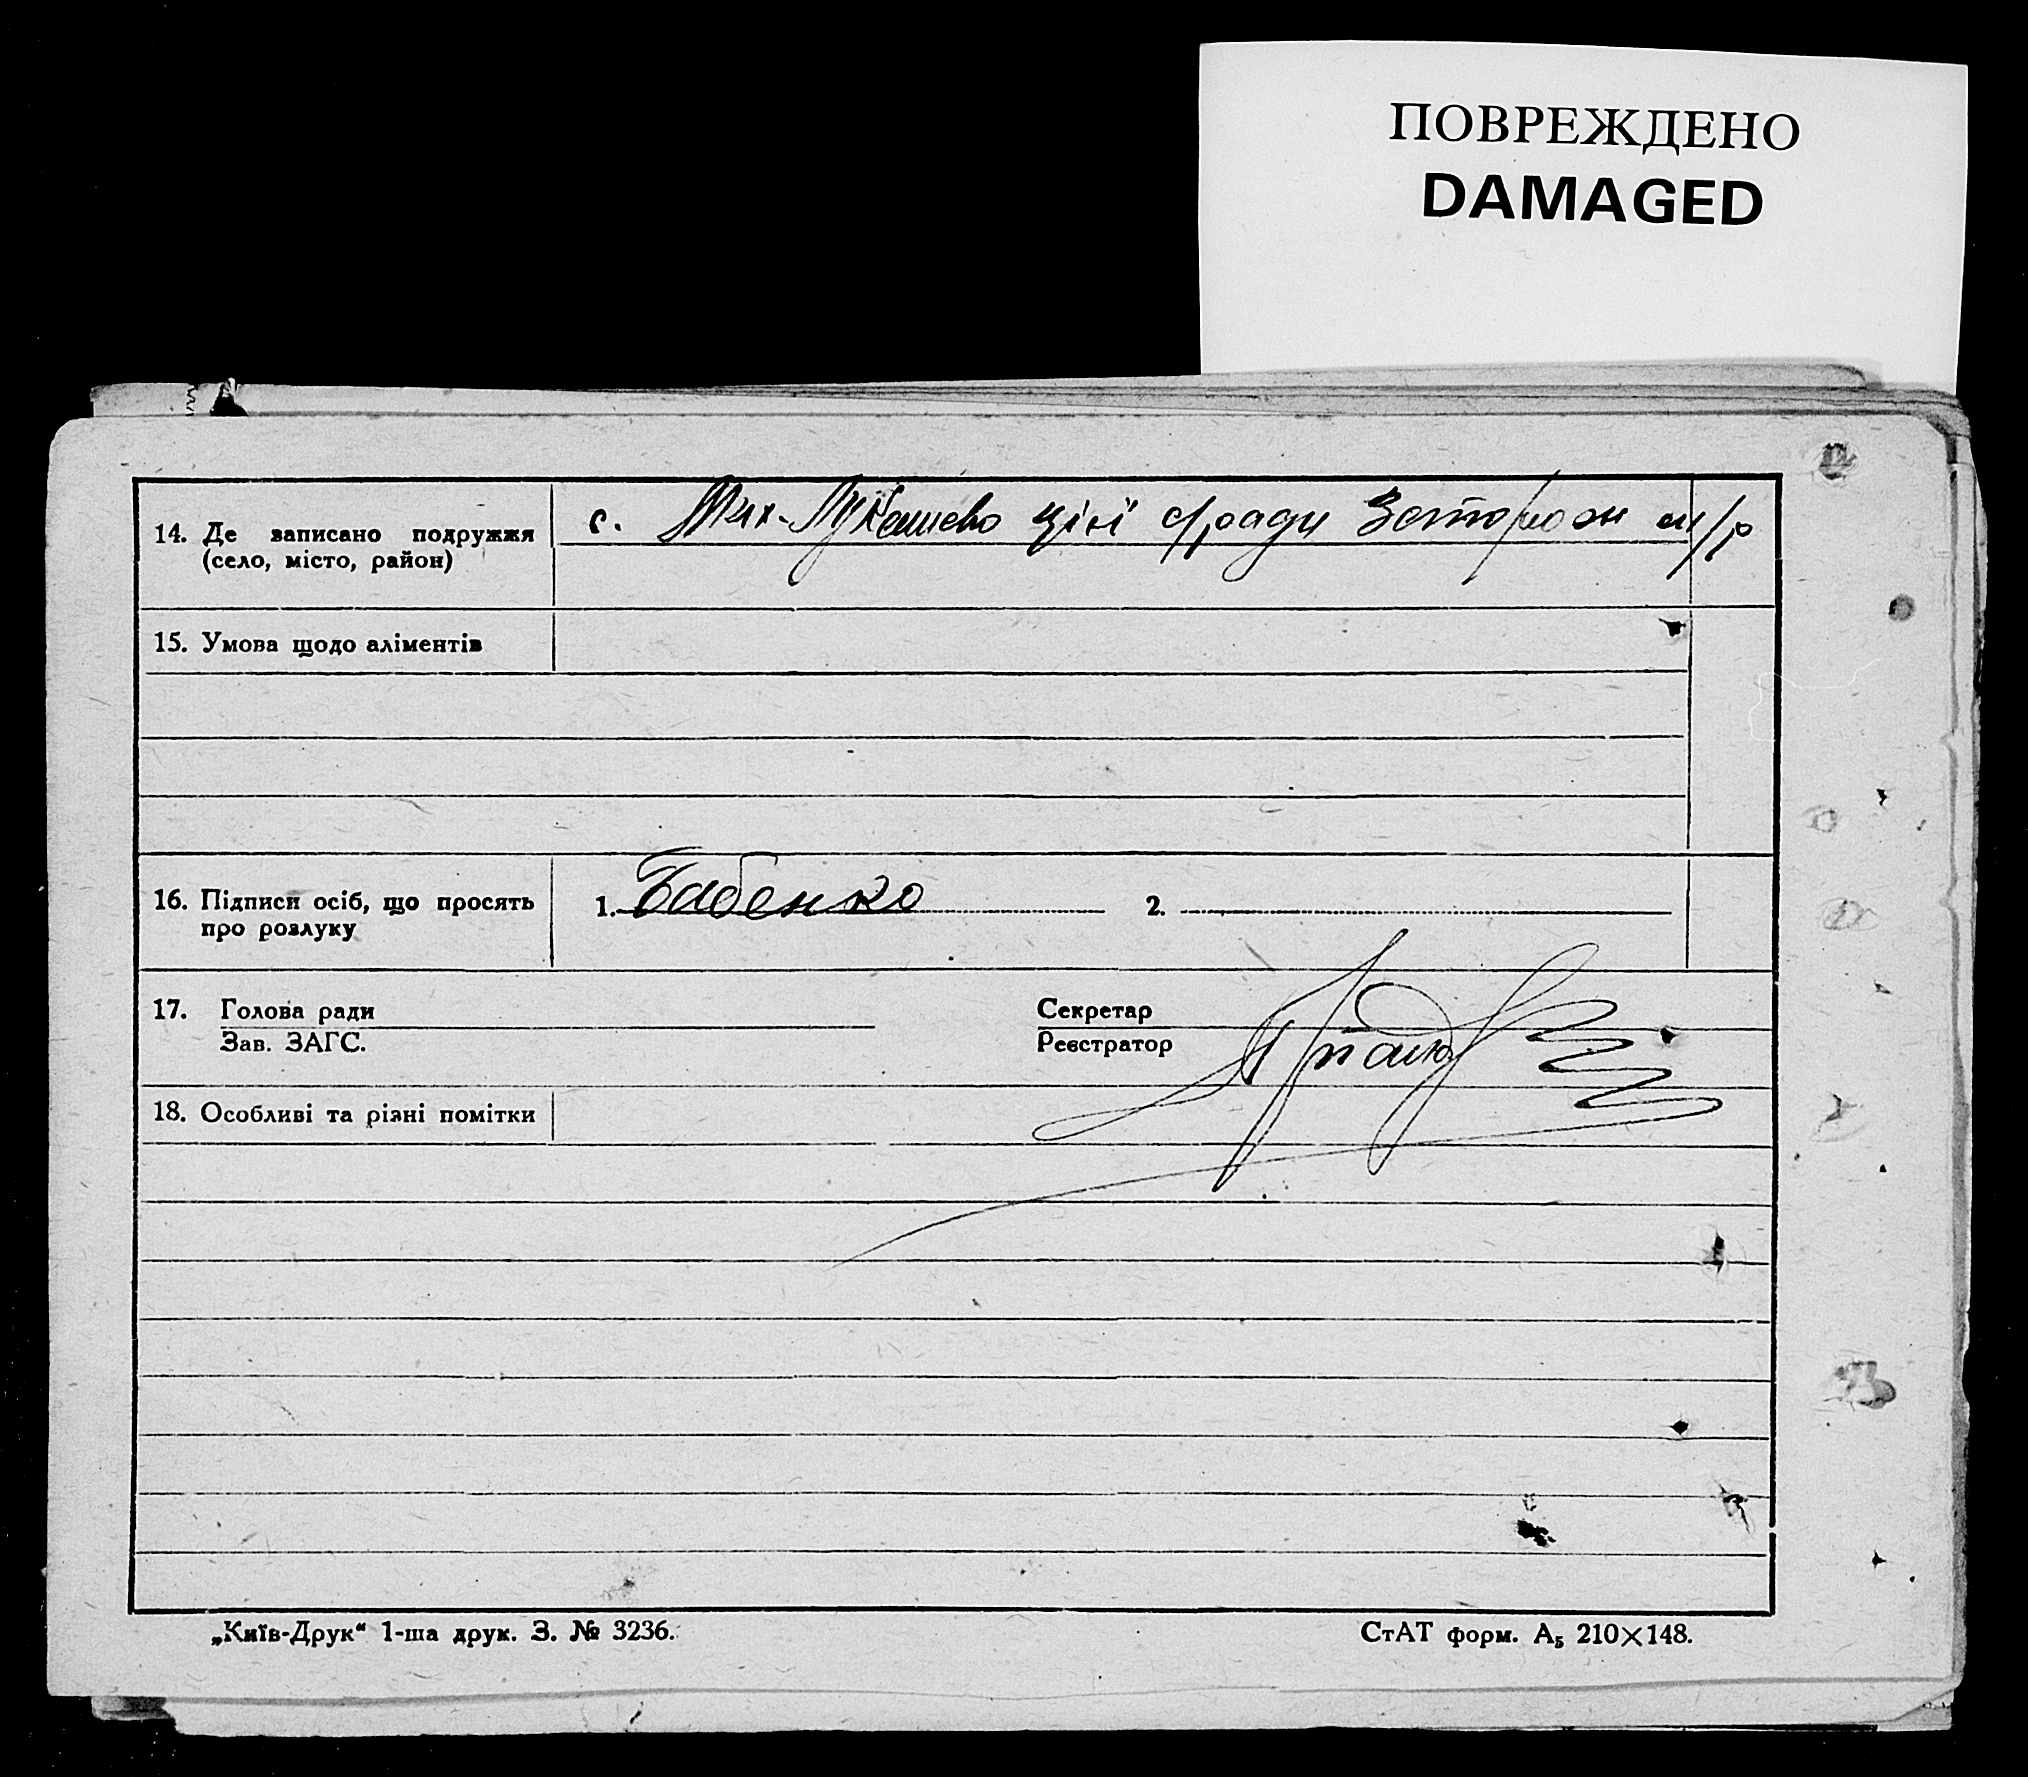 ПОВРЕЖДЕНО
DAMAGED
14. Де записано подружжя
(село, місто, район)
с. Мих-Лукашево цієї с/ради
15. Умова щодо аліментів
16. Підписи осіб, що просять
про розлуку
1. Бабенко 2.
17. Голова ради Секретар
Зав. ЗАГС. Реєстратор
18. Особливі та різні помітки
„Київ-Друк“ 1-ша друк. З. № 3236.
СтАТ форм. А₅ 210×148.